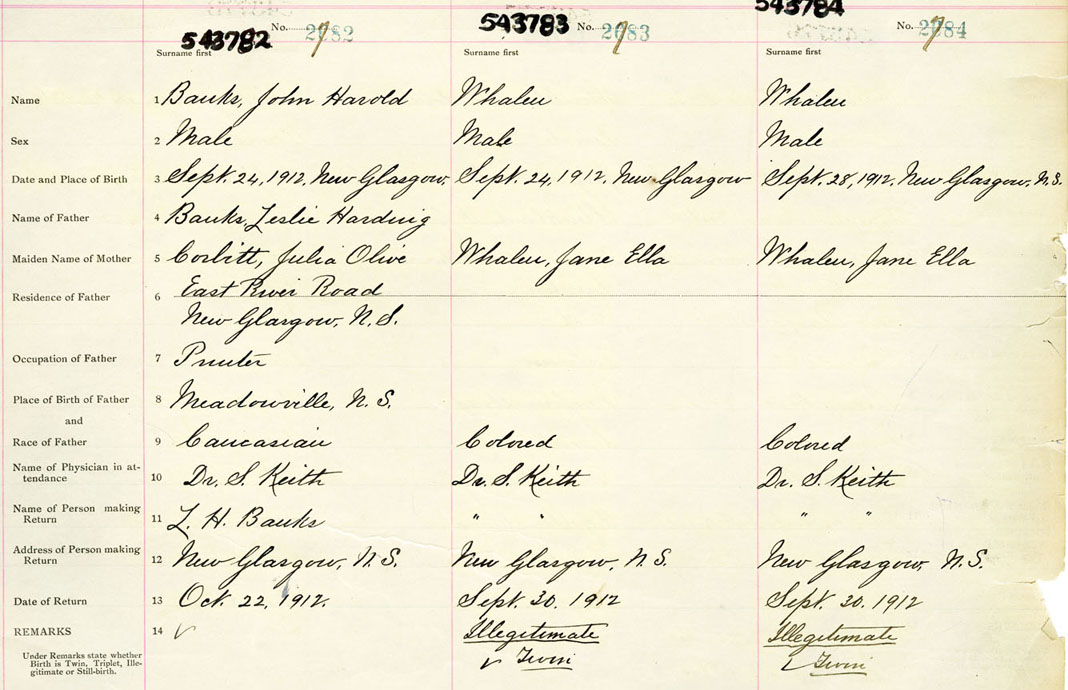 543782 No. 2082 543783 No. 2083 543784 No. 2084
Surname first Surname first Surname first
Name 1 Banks, John Harold Whalen Whalen
Sex 2 Male Male Male
Date and Place of Birth 3 Sept. 24, 1912, New Glasgow. Sept. 24, 1912, New Glasgow Sept. 28, 1912, New Glasgow, N.S.
Name of Father 4 Banks, Leslie Harding
Maiden Name of Mother 5 Corbitt, Julia Olive Whalen, Jane Ella Whalen, Jane Ella
Residence of Father 6 East River Road
New Glasgow, N.S.
Occupation of Father 7 Printer
Place of Birth of Father 8 Meadowville, N.S.
and
Race of Father 9 Caucasian Colored Colored
Name of Physician in at-
tendance 10 Dr. S. Keith Dr. S. Keith Dr. S. Keith
Name of Person making
Return 11 L. H. Banks " " " "
Address of Person making
Return 12 New Glasgow, N.S. New Glasgow, N.S. New Glasgow, N.S.
Date of Return 13 Oct. 22, 1912. Sept. 30. 1912 Sept. 30. 1912
REMARKS 14 Illegitimate Illegitimate
Under Remarks state whether
Birth is Twin, Triplet, Ille-
gitimate or Still-birth.
Twin Twin